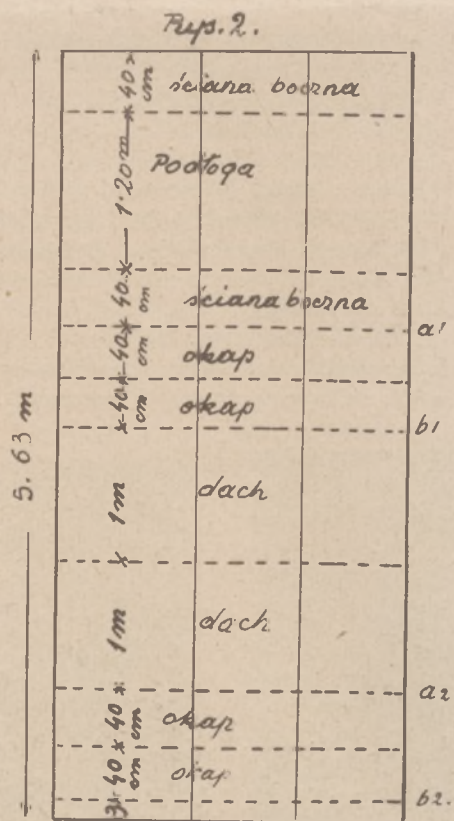 Rys. 2.
40 cm
ściana boczna
1·20 m
Podłoga
40 cm
ściana boczna
a1
40 cm
okap
40 cm
okap
b1
5.63 m
1m
dach
1m
dach
a2
40 cm
okap
40 cm
okap
3
b2.